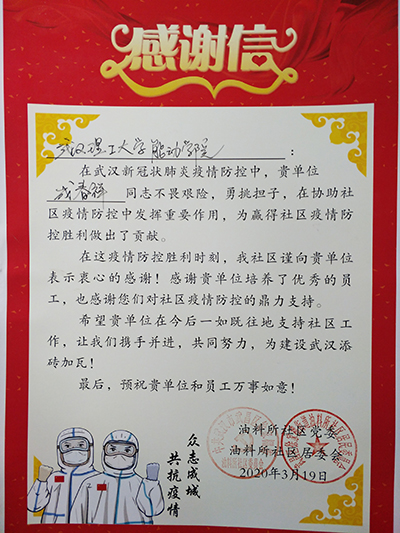 感谢信
武汉理工大学能动学院：
在武汉新冠状肺炎疫情防控中，贵单位
成春祥 同志不畏艰险，勇挑担子，在协助社
区疫情防控中发挥重要作用，为赢得社区疫情防
控胜利做出了贡献。
在这疫情防控胜利时刻，我社区谨向贵单位
表示衷心的感谢！感谢贵单位培养了优秀的员
工，也感谢您们对社区疫情防控的鼎力支持。
希望贵单位在今后一如既往地支持社区工
作，让我们携手并进，共同努力，为建设武汉添
砖加瓦！
最后，预祝贵单位和员工万事如意！
油料所社区党委
油料所社区居委会
2020年3月19日
众志成城
共抗疫情